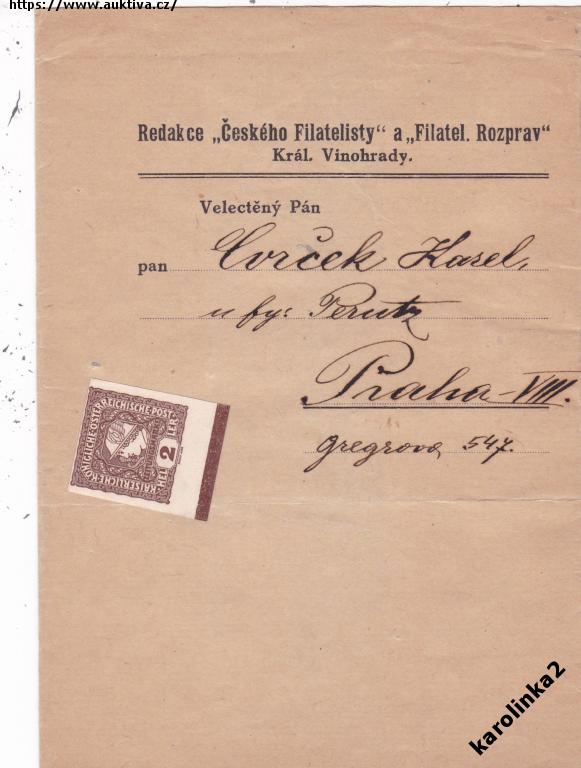 https://www.auktiva.cz/
Redakce „Českého Filatelisty“ a „Filatel. Rozprav“
Král. Vinohrady.
Velectěný Pán
pan Cvrček Karel,
u fy: Perutz
Praha-VIII.
Gregrova 547.
KAISERLICHE·KÖNIGLICHE·ÖSTERREICHISCHE·POST
HELLER
2
karolinka2